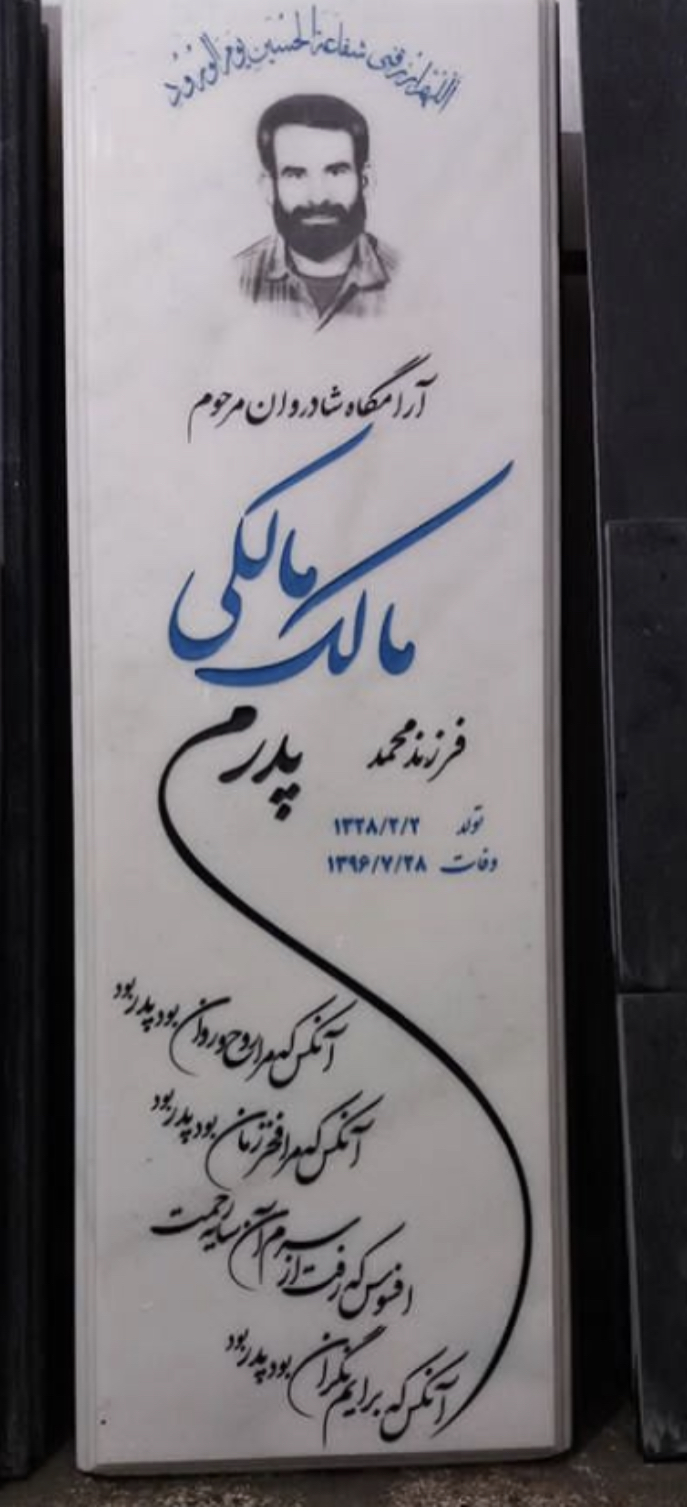 اللهم ارزقنی شفاعة الحسین یوم الورود
آرامگاه شادروان مرحوم
مالک مالکی
فرزند محمد
پدرم
تولد ۱۳۲۸/۲/۲
وفات ۱۳۹۶/۷/۲۸
آنکس که مرا روح و روان بود پدر بود
آنکس که مرا فخر زمان بود پدر بود
افسوس که رفت از سرم آن سایه رحمت
آنکس که برایم نگران بود پدر بود